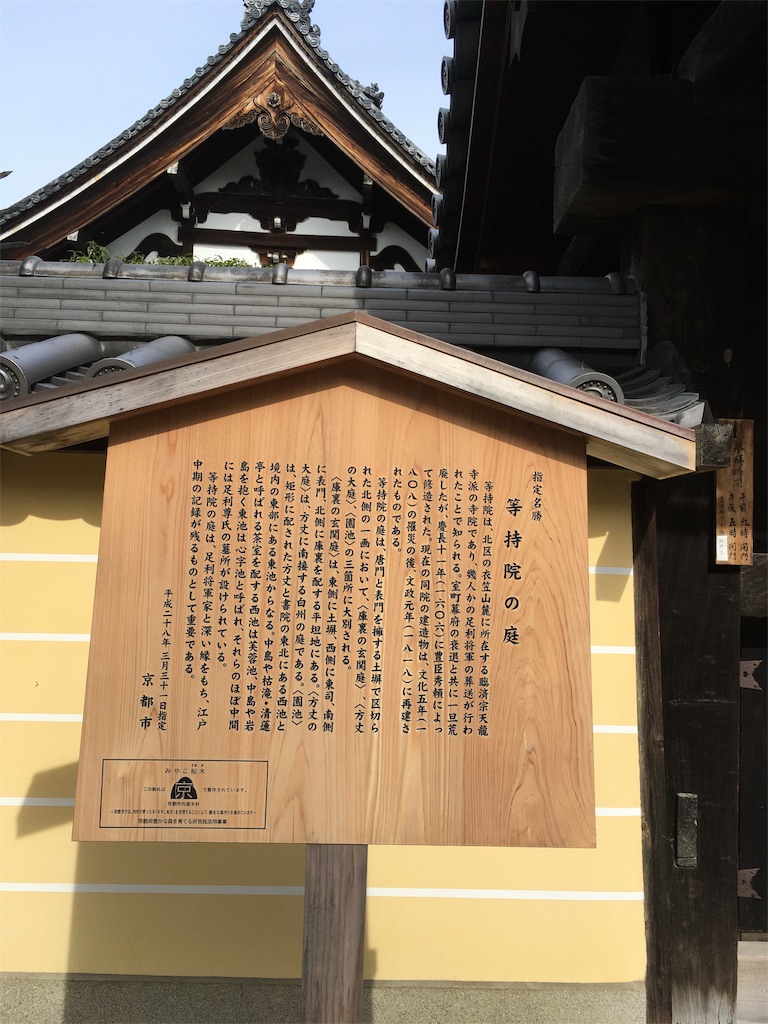 指定名勝
等持院の庭
等持院は、北区の衣笠山麓に所在する臨済宗天龍
寺派の寺院であり、幾人かの足利将軍の葬送が行わ
れたことで知られる。室町幕府の衰退と共に一旦荒
廃したが、慶長十一年(一六〇六)に豊臣秀頼によっ
て修造された。現在の同院の建造物は、文化五年(一
八〇八)の罹災の後、文政元年(一八一八)に再建さ
れたものである。
等持院の庭は、唐門と表門を擁する土塀で区切ら
れた北側の一画において、〈庫裏の玄関庭〉、〈方丈
の大庭〉、〈園池〉の三箇所に大別される。
〈庫裏の玄関庭〉は、東側に土塀、西側に東司、南側
に表門、北側に庫裏を配する平坦地にある。〈方丈の
大庭〉は、方丈に南接する白州の庭である。〈園池〉
は、矩形に配された方丈と書院の東北にある西池と
境内の東部にある東池からなる。中島や枯滝・清蓮
亭と呼ばれる茶室を配する西池は芙蓉池、中島や岩
島を抱く東池は心字池と呼ばれ、それらのほぼ中間
には足利尊氏の墓所が設けられている。
等持院の庭は、足利将軍家と深い縁をもち、江戸
中期の記録が残るものとして重要である。
平成二十八年 三月三十一日指定
京都市
みやこ杣木
この駒札は 京 で製作されています。
京都市内産木材
京都府豊かな森を育てる府民税活用事業
午前 九時 開門
午後 五時 閉門